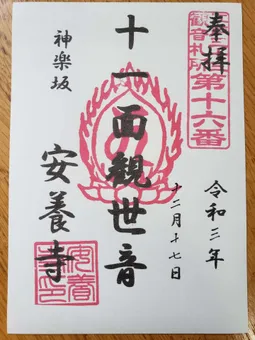 奉拝
第十六番
令和三年
十二月十七日
十一面観世音
神楽坂
安養寺